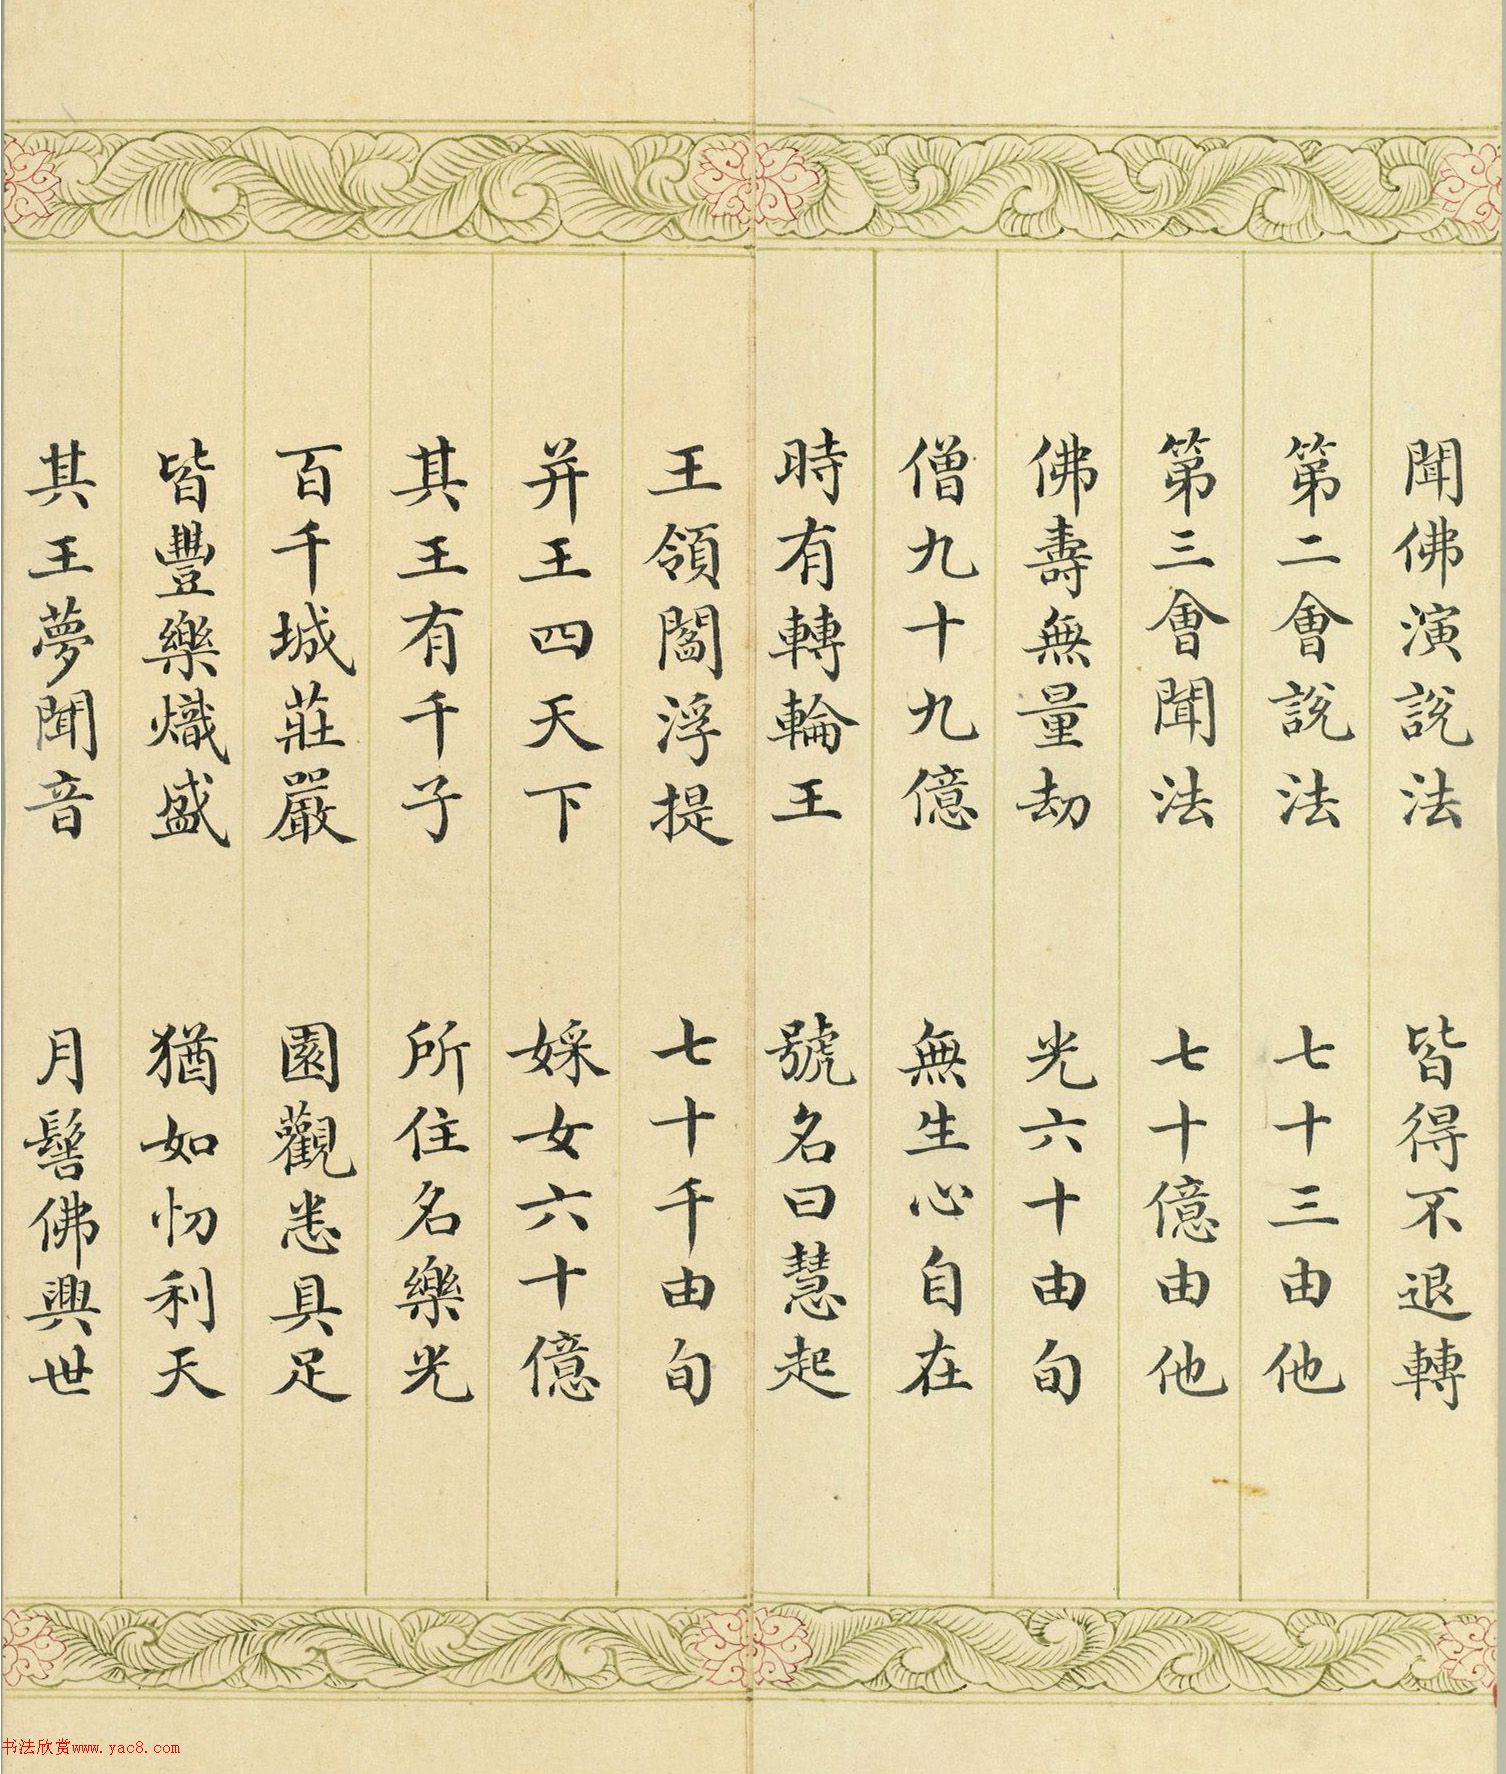 聞佛演說法　皆得不退轉
第二會說法　七十三由他
第三會聞法　七十億由他
佛壽無量劫　光六十由旬
僧九十九億　無生心自在
時有轉輪王　號名曰慧起
王領閻浮提　七十千由旬
并王四天下　婇女六十億
其王有千子　所住名樂光
百千城莊嚴　園觀悉具足
皆豐樂熾盛　猶如忉利天
其王夢聞音　月髻佛興世
书法欣赏www.yac8.com